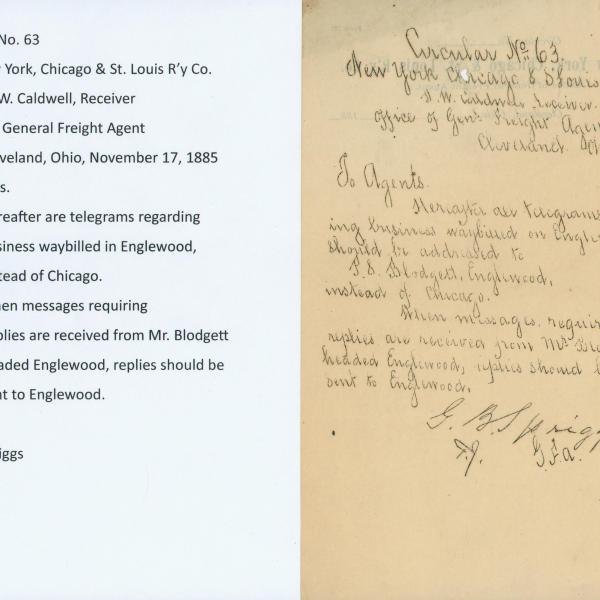 No. 63
York, Chicago & St. Louis R'y Co.
W. Caldwell, Receiver
General Freight Agent
veland, Ohio, November 17, 1885
s.
reafter are telegrams regarding
siness waybilled in Englewood,
tead of Chicago.
en messages requiring
plies are received from Mr. Blodgett
aded Englewood, replies should be
nt to Englewood.
iggs
Circular No. 63.
New York Chicago & St Louis
D. W. Caldwell Receiver.
Office of Genl Freight Agen
Cleveland O
To Agents.
Hereafter all telegrams
ing business waybilled on Engle
should be addressed to
P. S. Blodgett, Englewood,
instead of Chicago.
When messages, requir
replies are received from Mr Blo
headed Englewood, replies should b
sent to Englewood.
G. B. Sprigg
G.F.A.